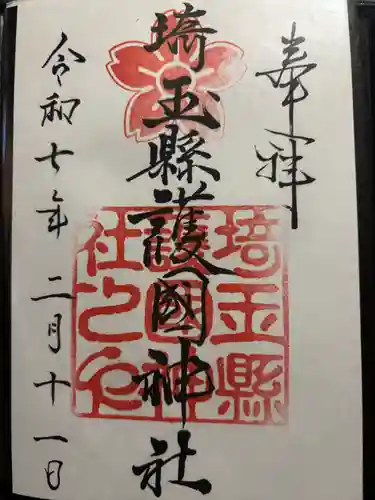 奉拝
埼玉縣護國神社
令和七年二月十一日
埼玉縣
護國神
社之印